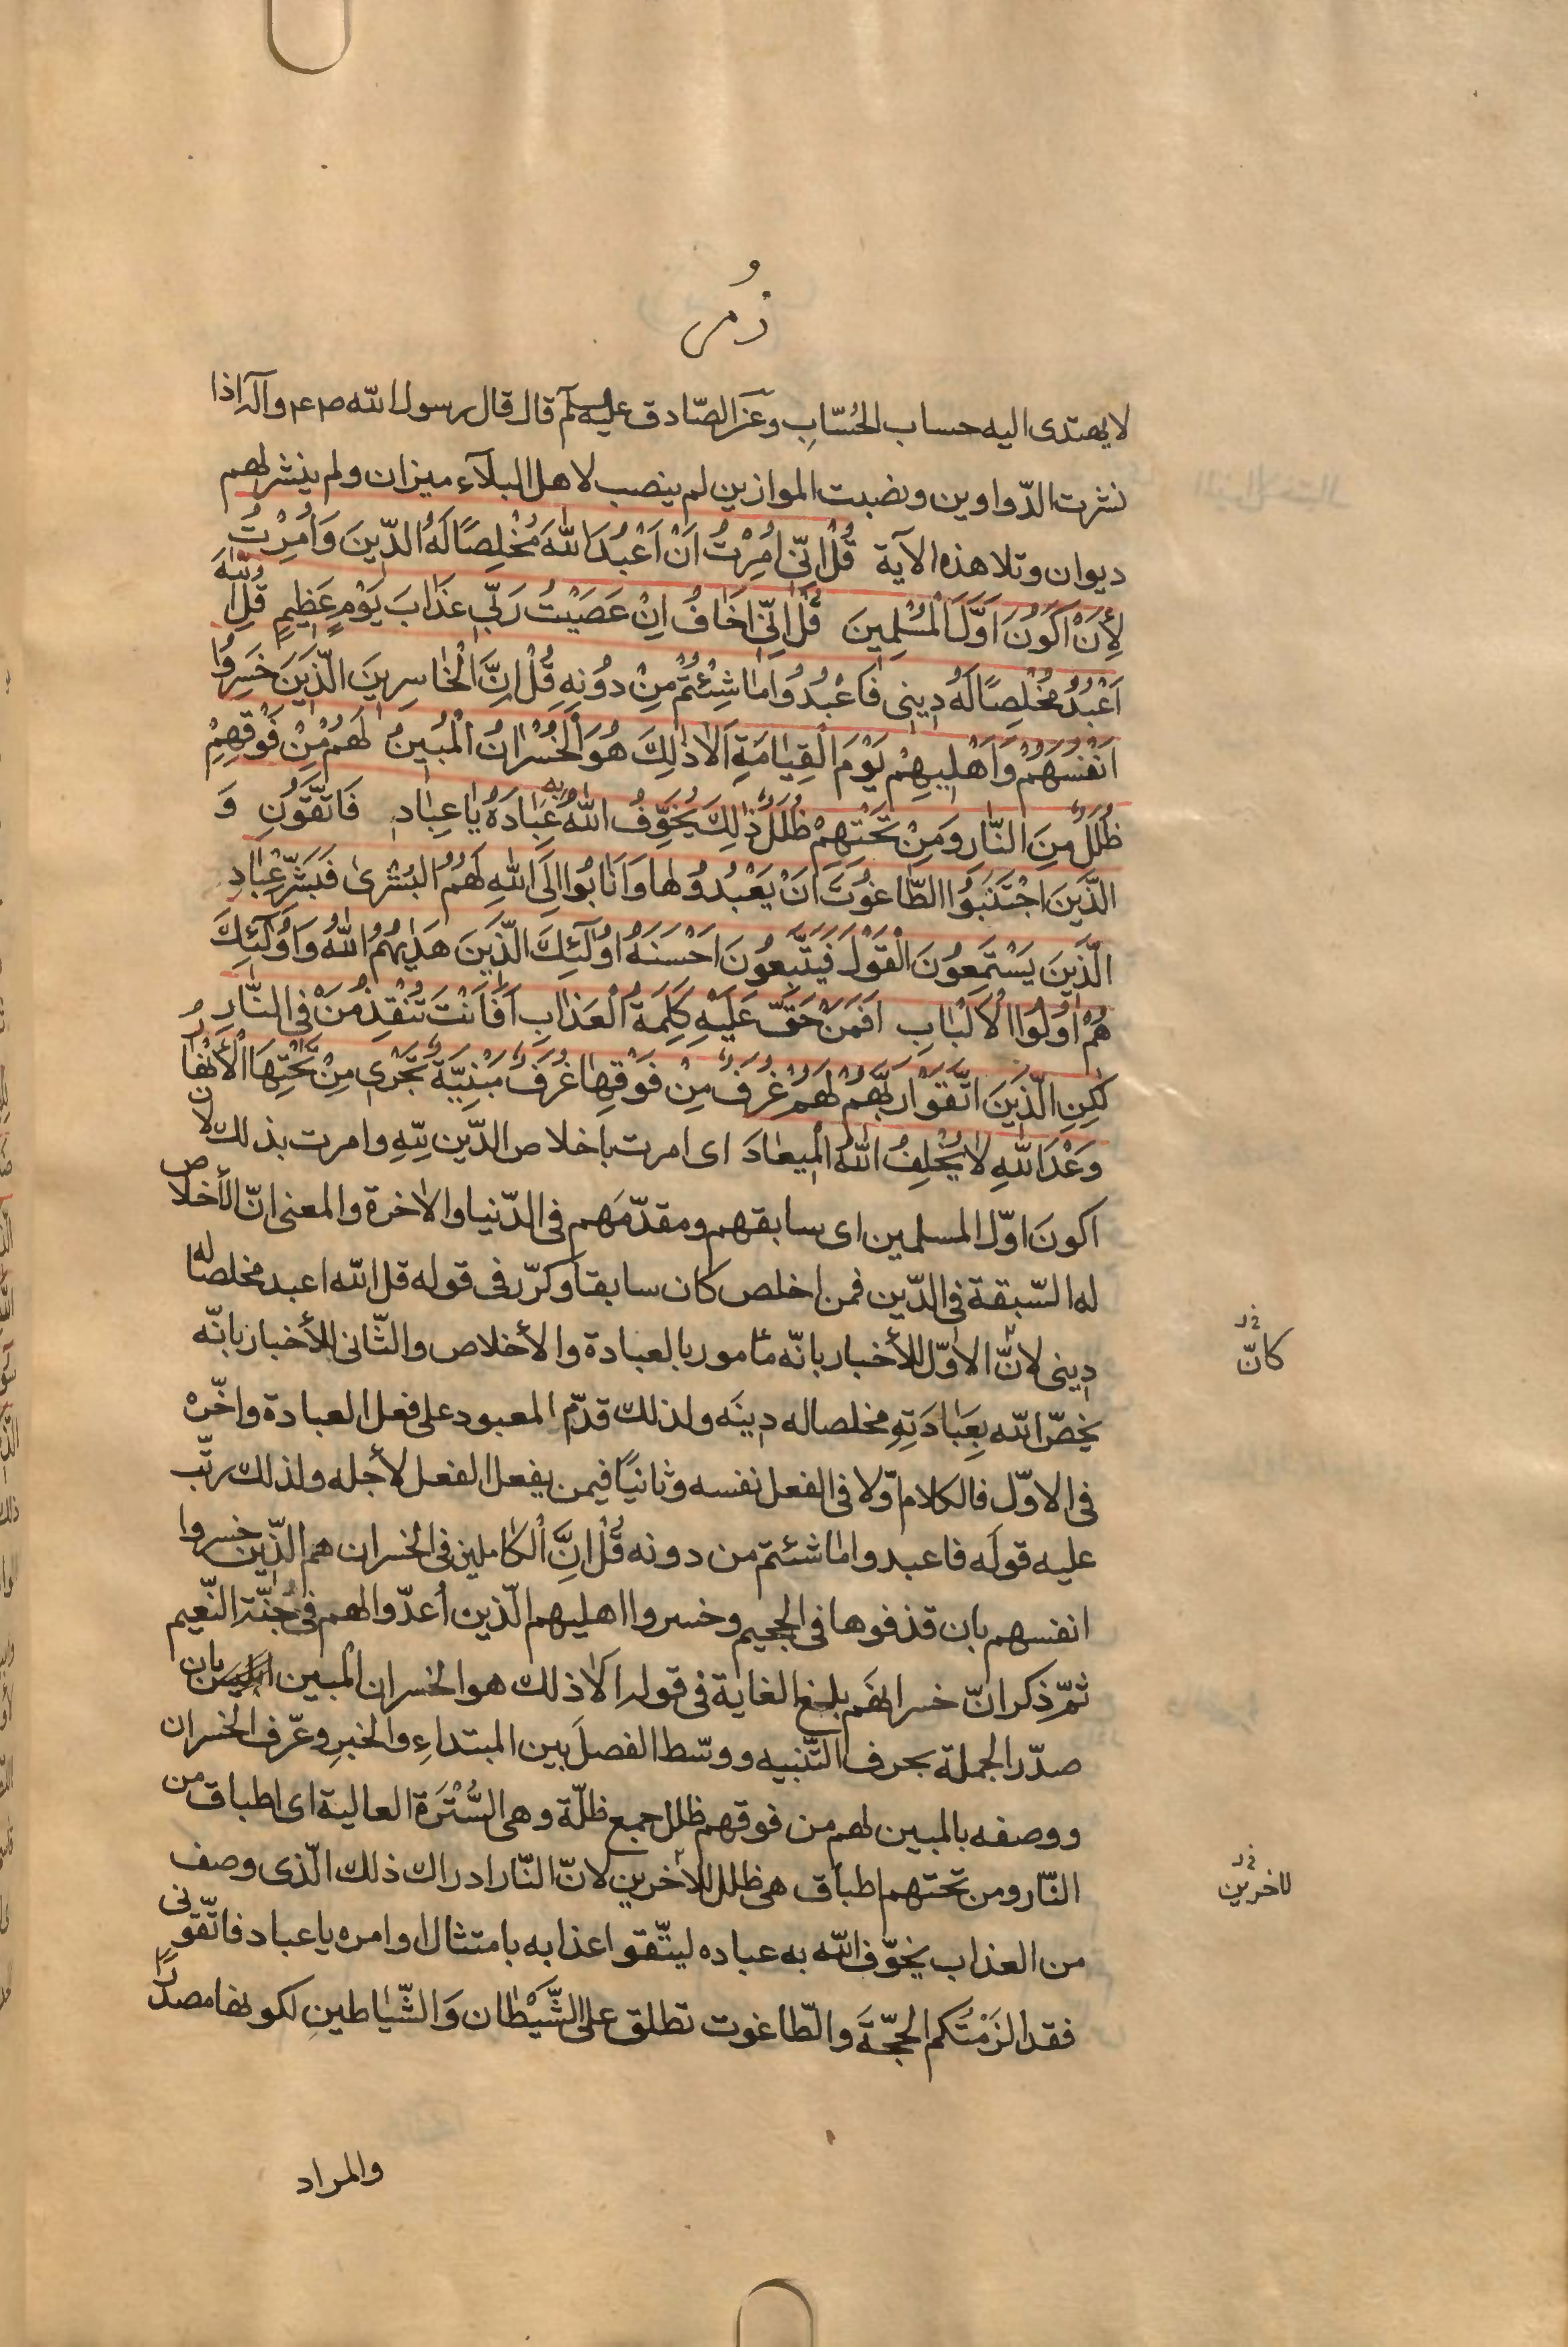 زُمر
لا يهتدى اليه حساب الحُسّابِ وعَن الصّادق عليه السلم قال قال رسول الله ص ع وآله اذا
نشرت الدّواوين ونصبت الموازين لم ينصب لاهل البلآء ميزان ولم ينشر لهم
ديوان وتلا هذه الآية قُلْ اِنّى اُمِرْتُ اَنْ اَعْبُدَ اللهَ مُخْلِصًا لَهُ الدّينَ وَاُمِرْتُ
لِأَنْ اَكُونَ اَوَّلَ الْمُسْلِمينَ قُلْ اِنّى اَخَافُ اِنْ عَصَيْتُ رَبّى عَذابَ يَوْمٍ عَظيمٍ قُلِ اللهَ
اَعْبُدُ مُخْلِصًا لَهُ دينى فَاعْبُدُوا ما شِئْتُمْ مِنْ دُونِهِ قُلْ اِنَّ الْخاسِرينَ الَّذينَ خَسِرُوا
اَنْفُسَهُمْ وَاَهْليهِمْ يَوْمَ الْقِيامَةِ اَلا ذلِكَ هُوَ الْخُسْرانُ الْمُبينُ لَهُمْ مِنْ فَوْقِهِمْ
ظُلَلٌ مِنَ النّارِ وَمِنْ تَحْتِهِمْ ظُلَلٌ ذلِكَ يُخَوِّفُ اللهُ بِهِ عِبادَهُ يا عِبادِ فَاتَّقُونِ وَ
الَّذينَ اجْتَنَبُوا الطّاغُوتَ اَنْ يَعْبُدُوها وَاَنابُوا اِلَى اللهِ لَهُمُ الْبُشْرى فَبَشِّرْ عِبادِ
الَّذينَ يَسْتَمِعُونَ الْقَوْلَ فَيَتَّبِعُونَ اَحْسَنَهُ اُولئِكَ الَّذينَ هَديهُمُ اللهُ وَاُولئِكَ
هُمْ اُولُوا الْاَلْبابِ اَفَمَنْ حَقَّ عَلَيْهِ كَلِمَةُ الْعَذابِ اَفَاَنْتَ تُنْقِذُ مَنْ فِى النّارِ
لكِنِ الَّذينَ اتَّقَوْا رَبَّهُمْ لَهُمْ غُرَفٌ مِنْ فَوْقِها غُرَفٌ مَبْنِيَّةٌ تَجْرى مِنْ تَحْتِهَا الْأَنْهارُ
وَعْدَ اللهِ لا يُخْلِفُ اللهُ الْميعادَ اى امرت باخلاص الدّين لِلّهِ وامرت بذلك لان
اكونَ اوّل المسلمين اى سابقهم ومقدّمَهم فى الدّنيا والاخرة والمعنى انّ الأخلاص
له السّبقة فى الدّين فمن اخلص كان سابقا وكرّر فى قوله قل الله اعبد مخلصا له
دينى لانّ الاوّل للأخبار بانّه مأمور بالعبادة والأخلاص والثّانى للأخبار بانّه
يخصّ الله بِعِبَادَتِهِ مخلصا له دينَه ولذلك قدّم المعبود على فعل العبادة واخّره
فى الاوّل فالكلام اوّلا فى الفعل نفسه وثانيًا فيمن يفعل الفعل لأجله ولذلك رتّب
عليه قولَه فاعبدوا ما شئتم من دونه قُلْ اِنَّ الْكاملين فى الخسران هم الّذين خسروا
انفسهم بان قذفوها فى الجحيم وخسروا اهليهم الّذين أعدّوا لهم فى جنّة النّعيم
ثمّ ذكر انّ خسرانهم بلغ الغاية فى قوله الا ذلك هو الخسران المبين بان
صدّر الجملة بحرف التّنبيه ووسّط الفصلَ بين المبتداءِ والخبرِ وعّرف الخسران
ووصفه بالمبين لهم من فوقهم ظلل جمع ظلّة وهى السُّتْرَة العالية اى اطباق من
النّار ومن تحتهم اطباق هى ظلل للآخرين لانّ النّار ادراك ذلك الّذى وصف
من العذاب يخوّف الله به عباده ليتّقوا عذابه بامتثال اوامره يا عباد فاتّقونى
فقد الزَمْتُكم الحجّةَ والطّاغوت تطلق على الشَّيْطان وَالشّياطينِ لكونها مصدرًا
والمراد
كانّ خ ر
لاخرين خ ر